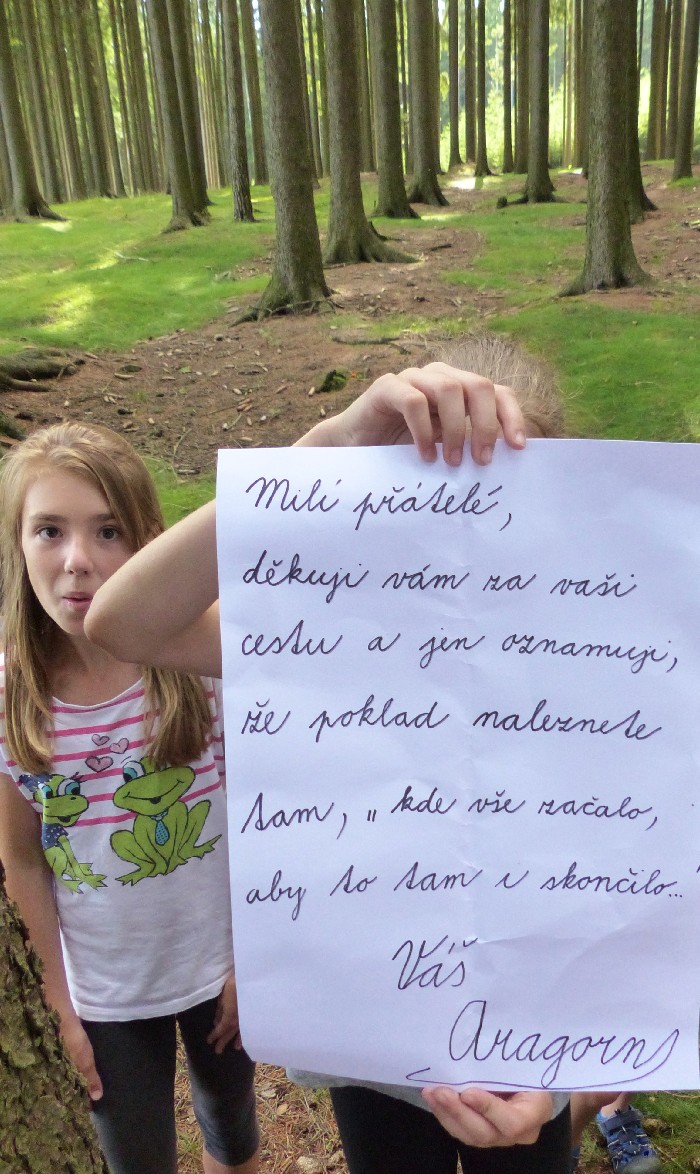 Milí přátelé,
děkuji vám za vaši
cestu a jen oznamuji,
že poklad naleznete
tam, „kde vše začalo,
aby to tam i skončilo..."
Váš
Aragorn